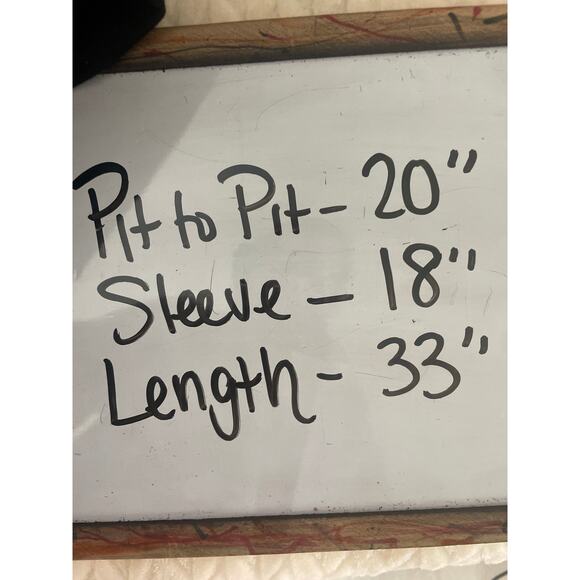 Pit to Pit - 20"
Sleeve - 18"
Length - 33"